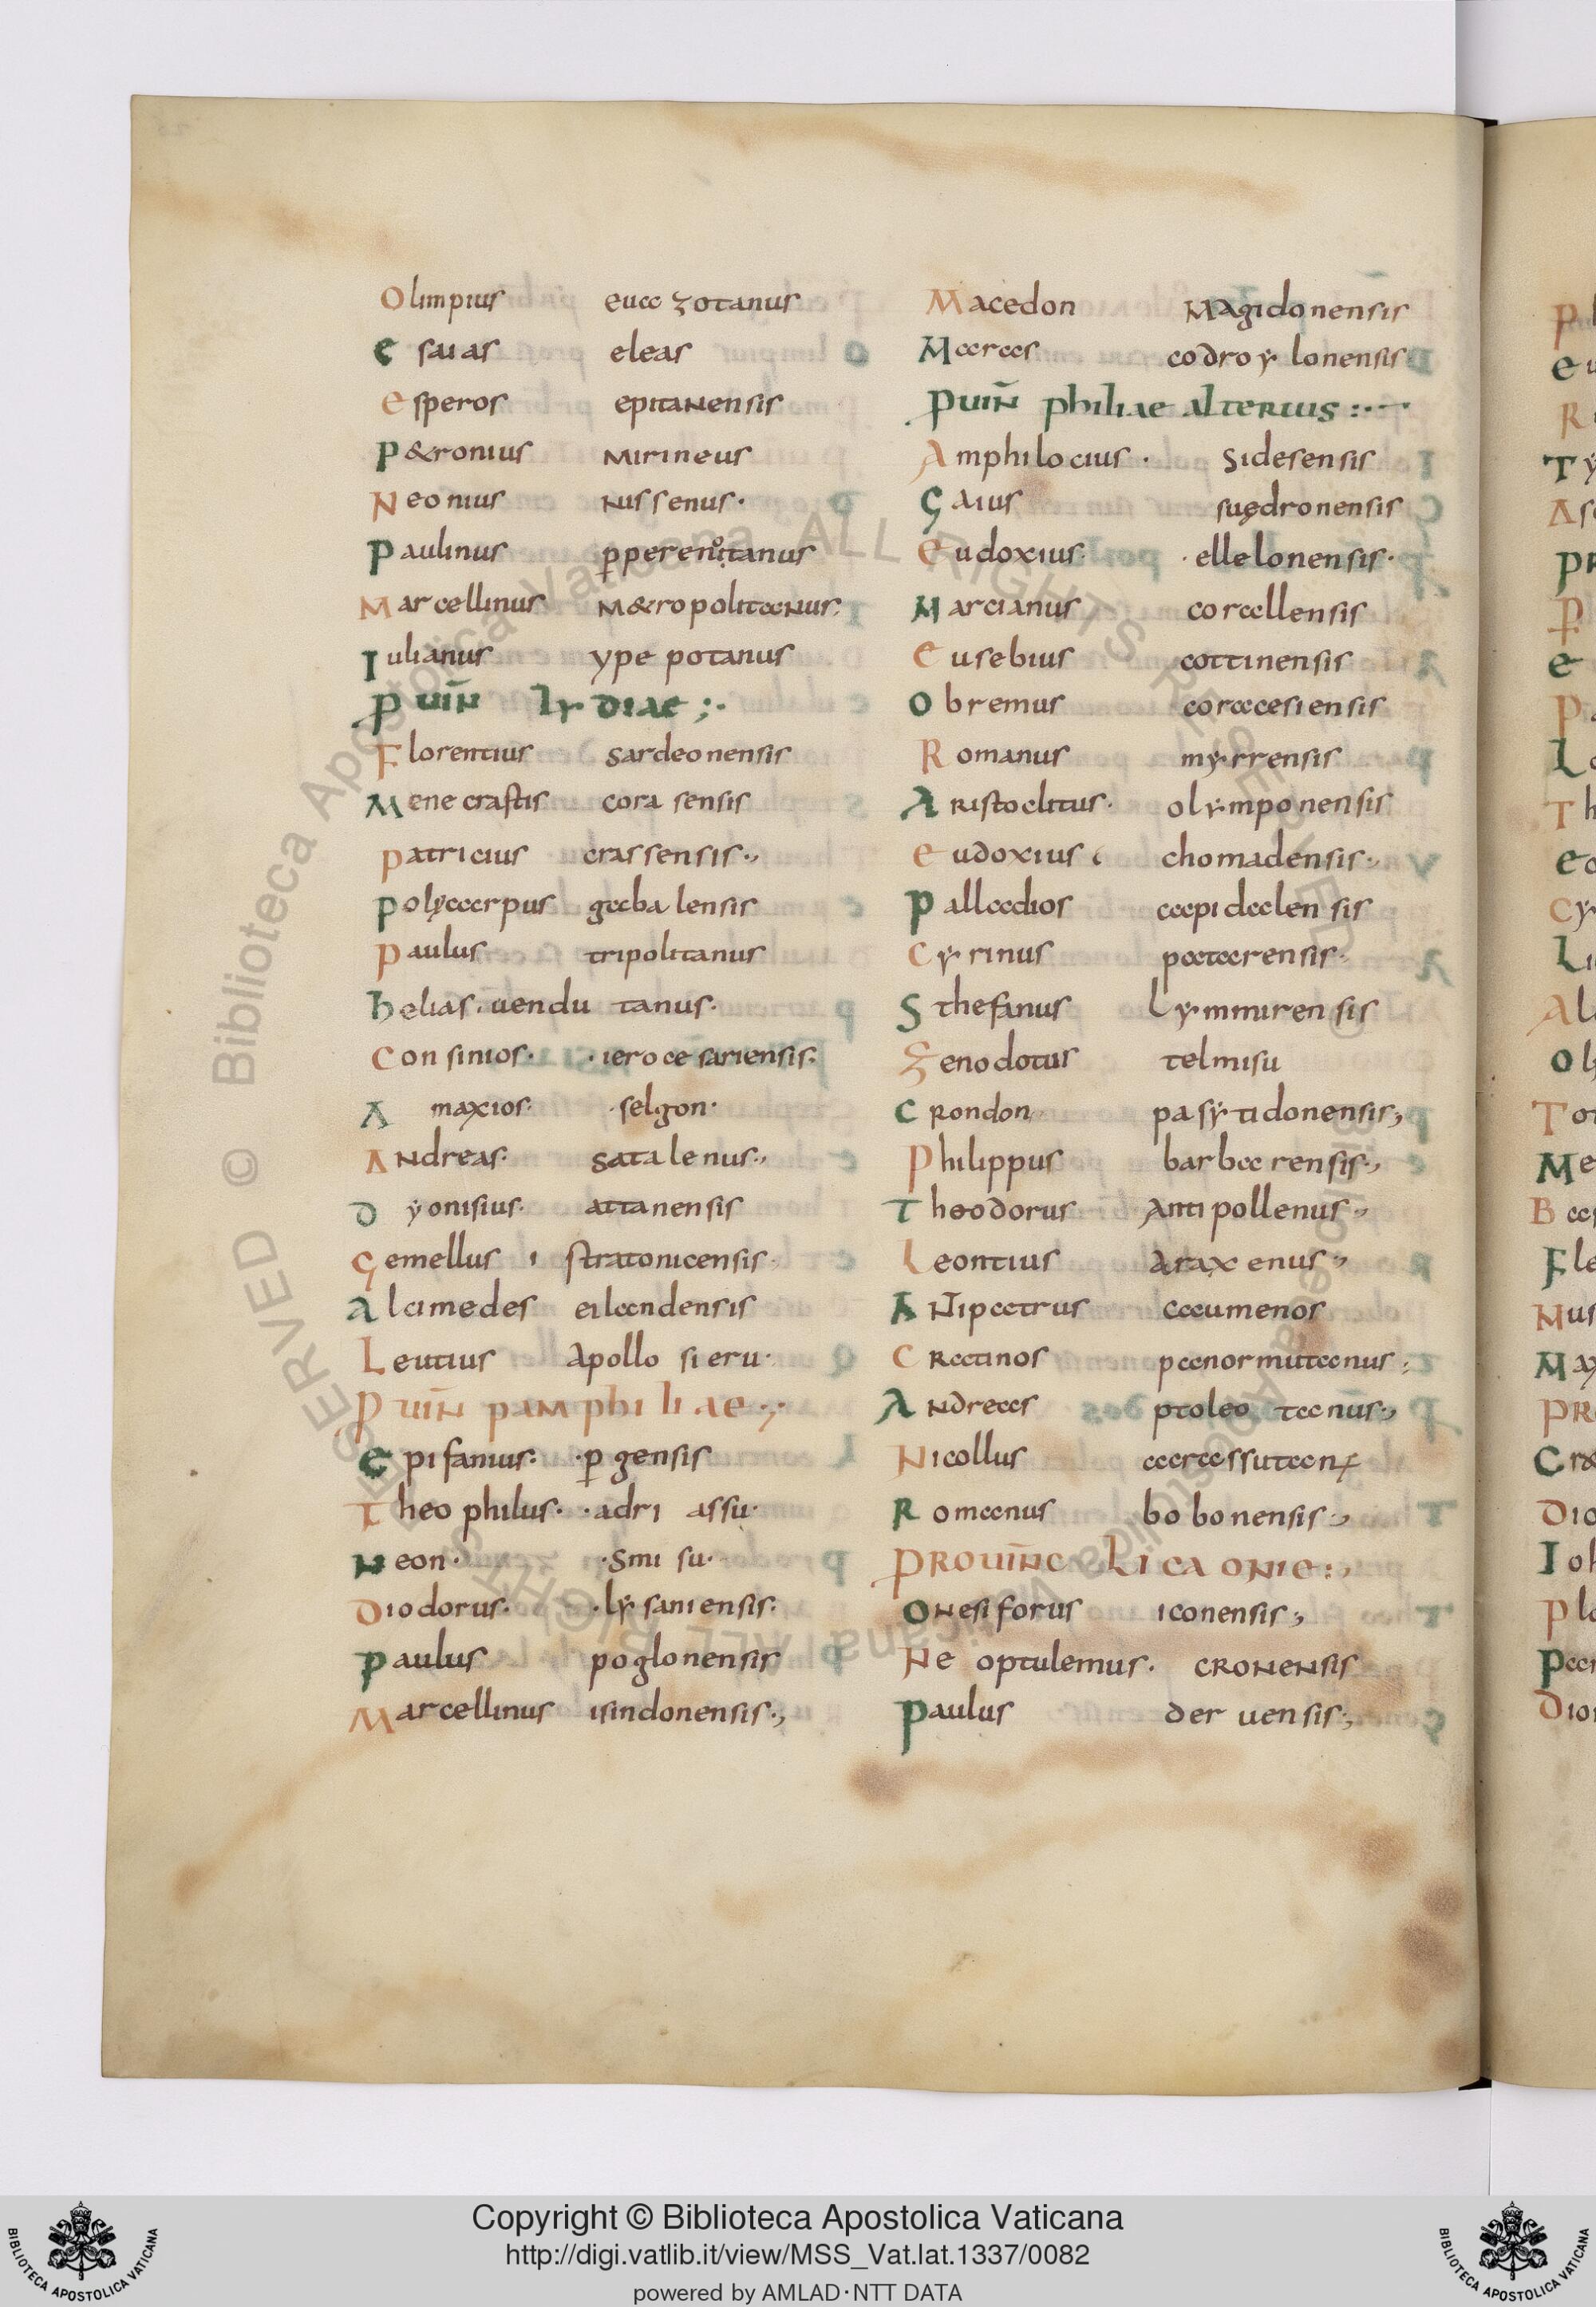 Olimpius euazotanus
Esaias eleas
Esperos epitanensis
P&ronius mirineus
Neonius nissenus·
Paulinus
Marcellinus m&ropolitanus;
Iulianus ypepotanus
puin̄ lydiae ;·
Florentius sardeonensis
Menecrastis cora sensis
Patricius crassensis·,
Polycarpus gabalensis
Paulus tripolitanus
helias·uendu tanus·
Consinios· ·ieroce sariensis:
A maxios· ·selgon·
Andreas· satalenus·,
Dyonisius· attanensis
Gemellus ı stratonicensis·
Alcimedes eilandensis
Leutius apollo sieru·
Puin̄ pamphiliae·;·
Epifanius: ·ꝑgensis
Theophilus· ·adri assu·
Neon· ·smi su·
Diodorus· ·lysaniensis:
Paulus poglonensis
Marcellinus isindonensis·,
Macedon Magidonensis
Maras codroy lonensis
puin̄ philiae alterius :·
Amphilocius · sidesensis
Gaius suędronensis
Eudoxius· ·ellelonensis·
Marcianus corallensis
Eusebius cottinensis
Obremus coracesiensis
Romanus myrrensis
Aristoclitus· olymponensis
Eudoxius chomadensis·,
Palladios aapidalensis
Cyrinus patarensis·
Sthefanus lymmirensis
Zenodotus telmisu
Crondon pasytidonensis,
Philippus barbarensis·,
Theodorus antipollenus·,
Leontius araxenus·,
Anipatrus acumenos
Cratinos panormutanus:
Andreas ptoleo tanus·,
Nicollus
Romanus bobonensis·,
prouinc licaonie:,
Onesiforus iconensis,
Neoptulemus· cronensis
Paulus deruensis;
Copyright © Biblioteca Apostolica Vaticana
http://digi.vatlib.it/view/MSS_Vat.lat.1337/0082
powered by AMLAD·NTT DATA